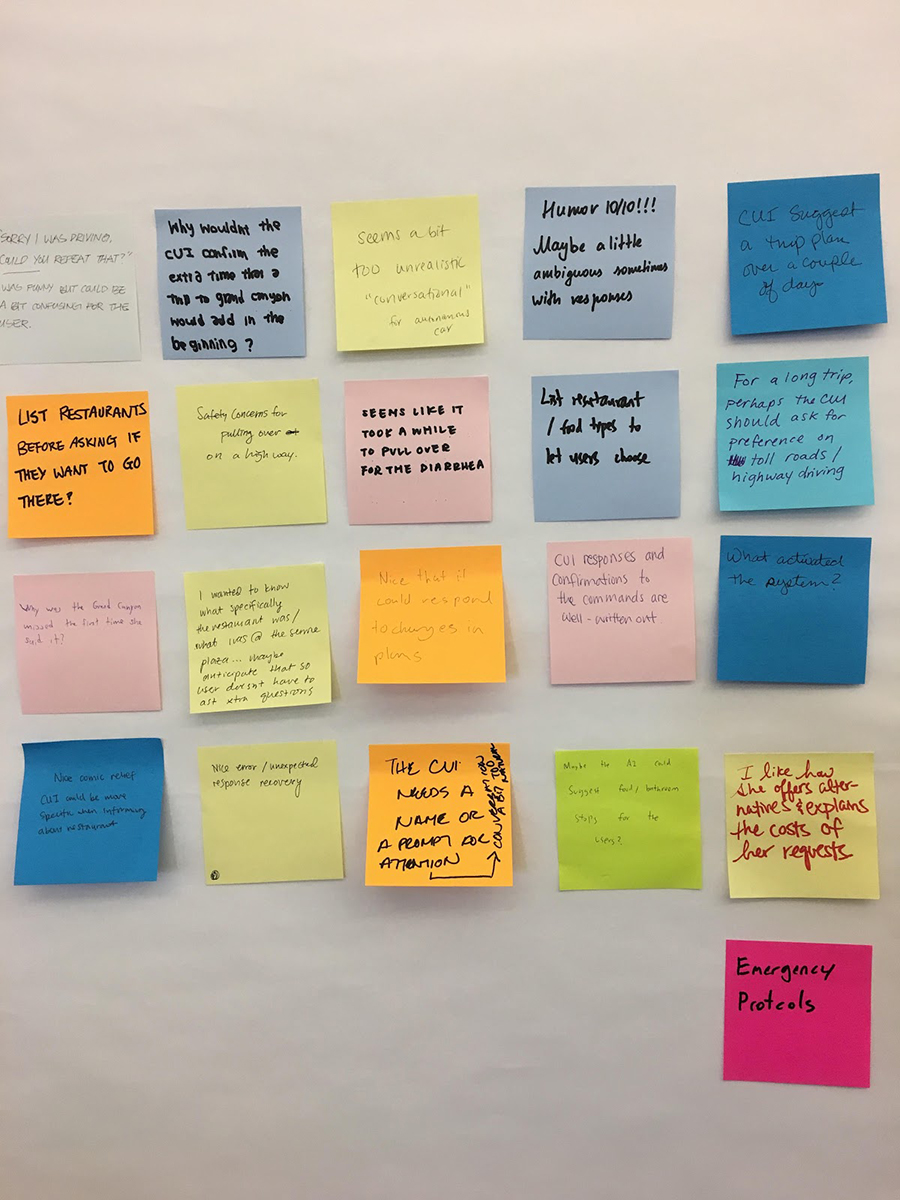 "SORRY I WAS DRIVING,
COULD YOU REPEAT THAT?"
WAS FUNNY BUT COULD BE
A BIT CONFUSING FOR THE
USER.
Why wouldnt the
CUI confirm the
extra time that a
trip to grand canyon
would add in the
beginning?
Seems a bit
too unrealistic
"conversational"
for autonomous
car
Humor 10/10!!!
Maybe a little
ambiguous sometimes
with responses
CUI Suggest
a trip plan
over a couple
of days
LIST RESTAURANTS
BEFORE ASKING IF
THEY WANT TO GO
THERE?
Safety Concerns for
pulling over
on a high way.
SEEMS LIKE IT
TOOK A WHILE
TO PULL OVER
FOR THE DIARRHEA
List resetaurant
/ food types to
let users choose
For a long trip,
perhaps the CUI
should ask for
preference on
toll roads /
highway driving
Why was the Grand Canyon
missed the first time she
said it?
I wanted to know
what specifically
the restaurant was/
what was @ the service
plaza... maybe
anticipate that so
user doesn't have to
ask xtra questions
Nice that it
could respond
to changes in
plans
CUI responses and
Confirmations to
the commands are
well-written out.
What activated
the system?
Nice comic relief
CUI could be more
specific when informing
about restaurant
Nice error / unexpected
response recovery
THE CUI
NEEDS A
NAME OR
A PROMPT FOR
ATTENTION
CONVERSATION
A BIT TOO
Maybe the A2 could
Suggest food / bathroom
stops for the
users?
I like how
she offers alter-
natives & explains
the costs of
her requests
Emergency
Protcols